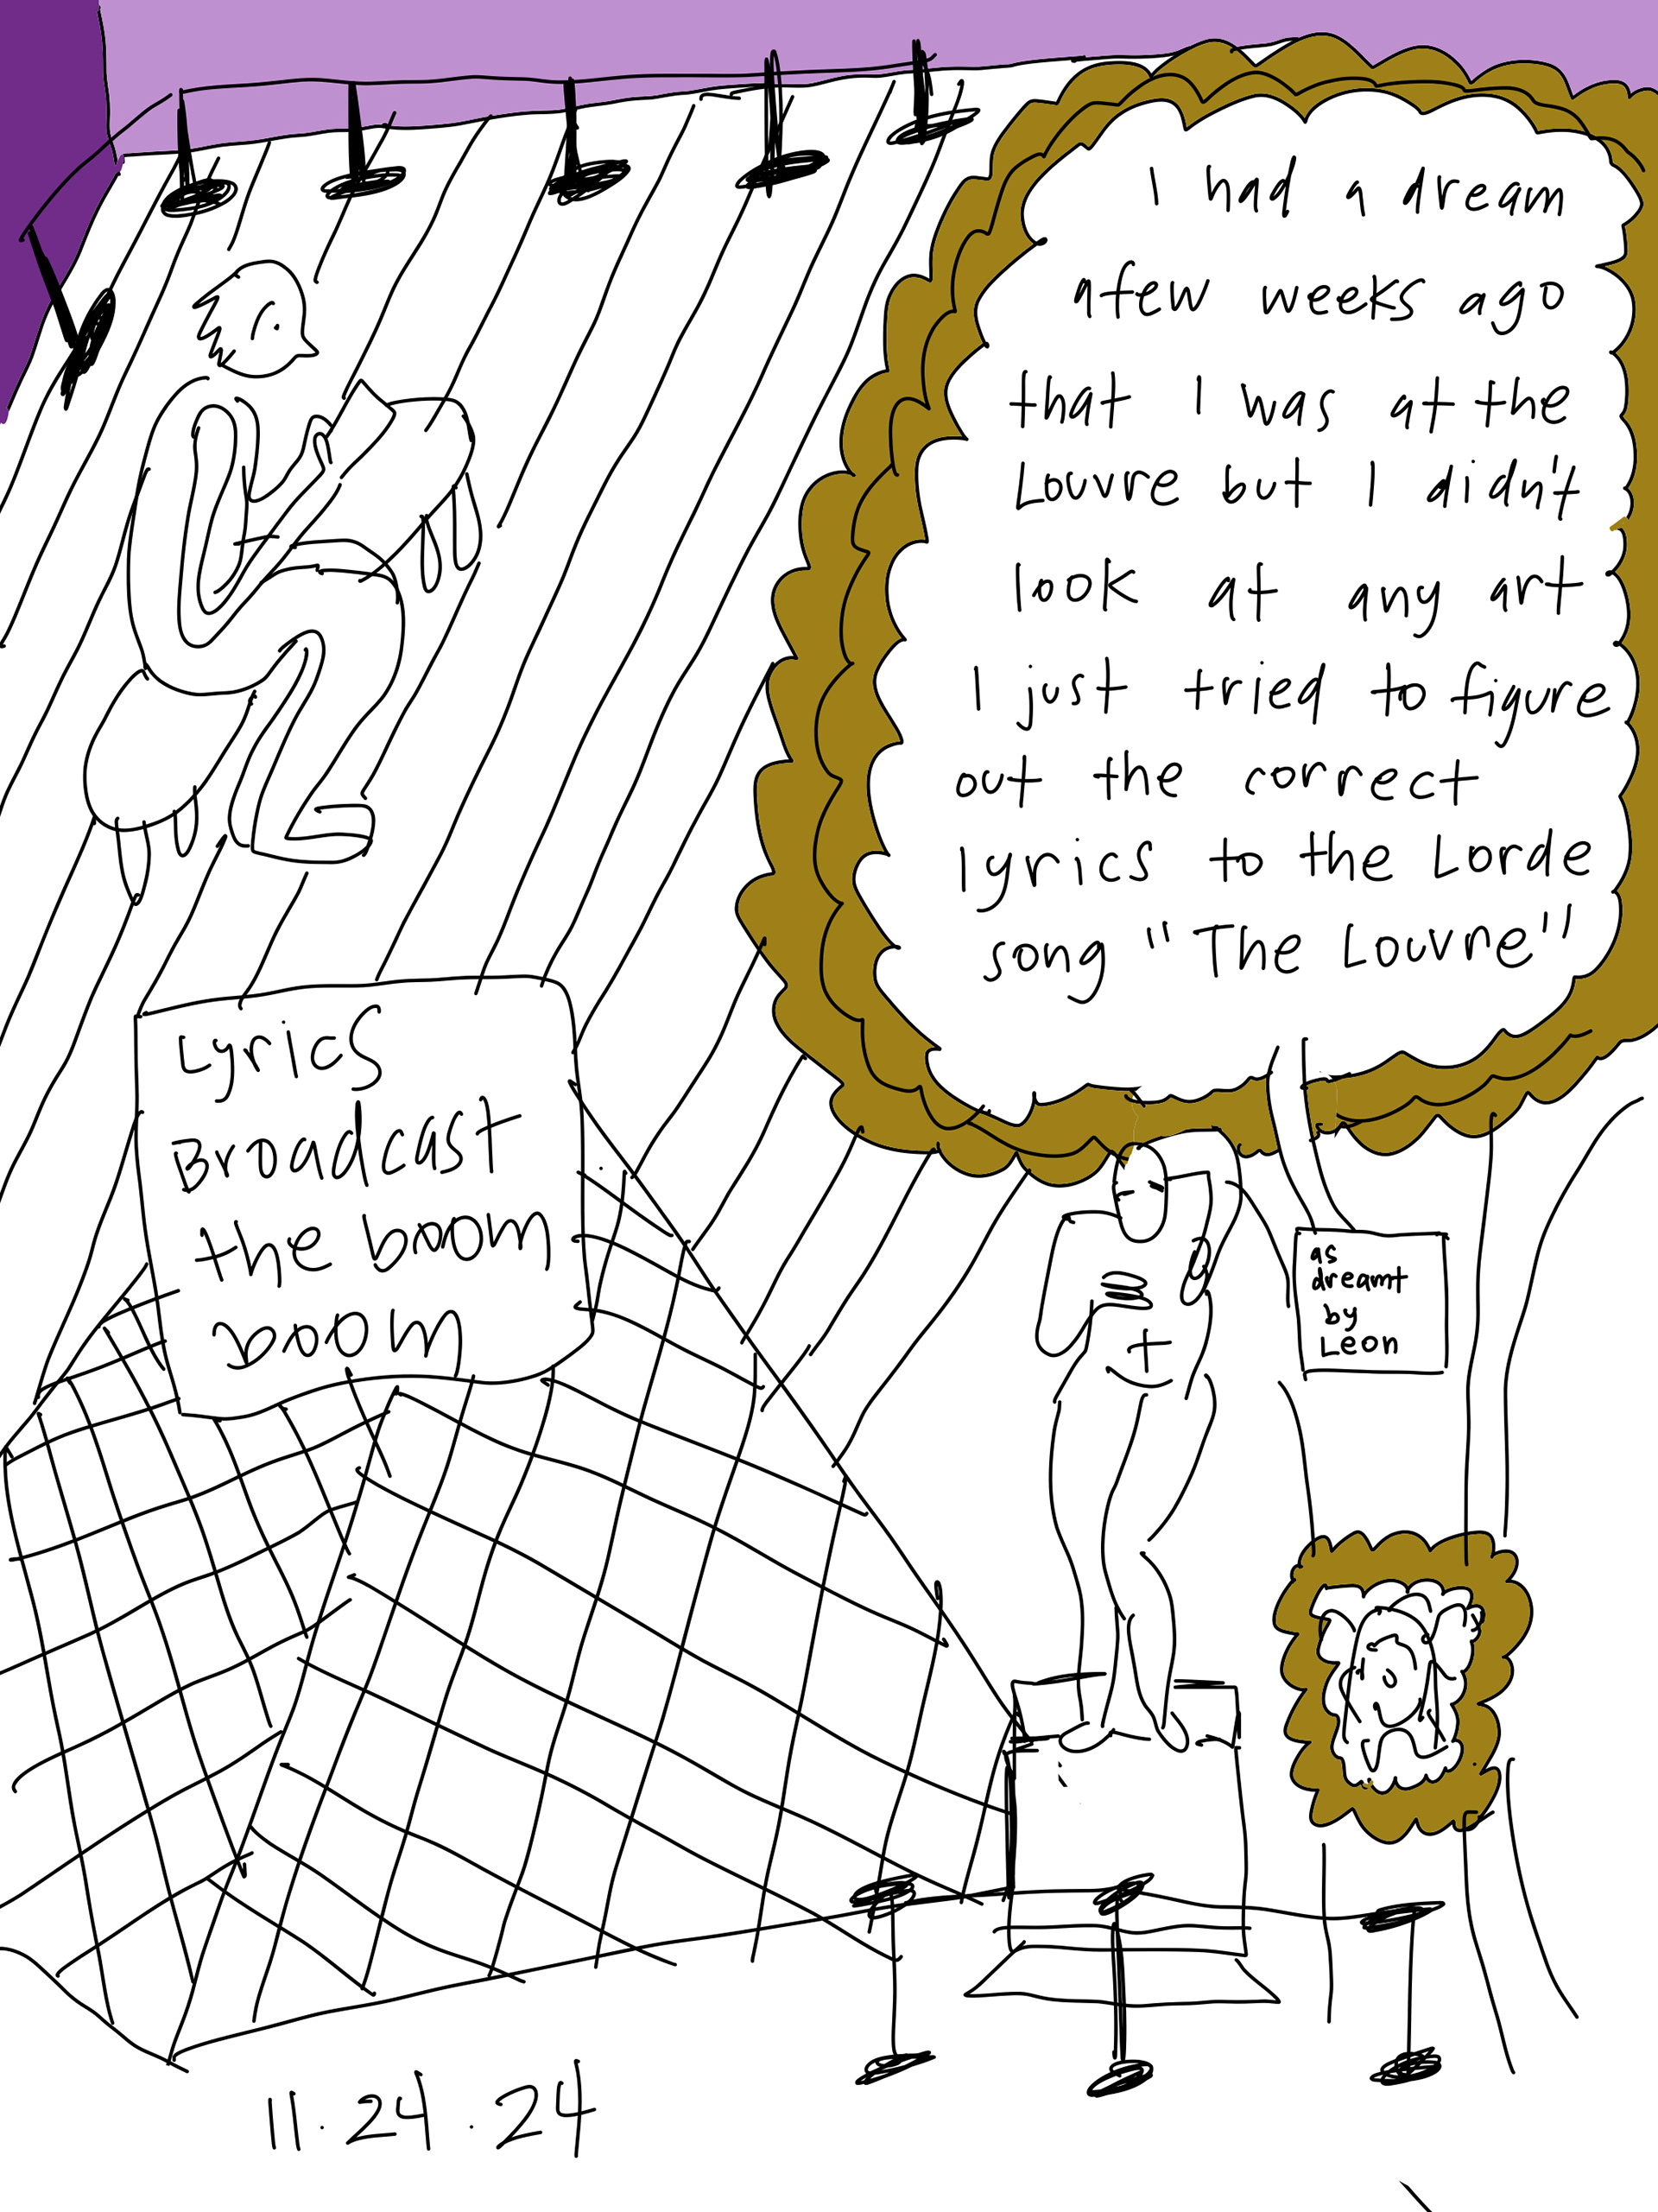 I had a dream
a few weeks ago
that I was at the
Louvre but I didn't
look at any art
I just tried to figure
out the correct
lyrics to the Lorde
song "The Louvre"
Lyrics
Broadcast
the boom
boom
as
dreamt
by
Leon
11.24.24